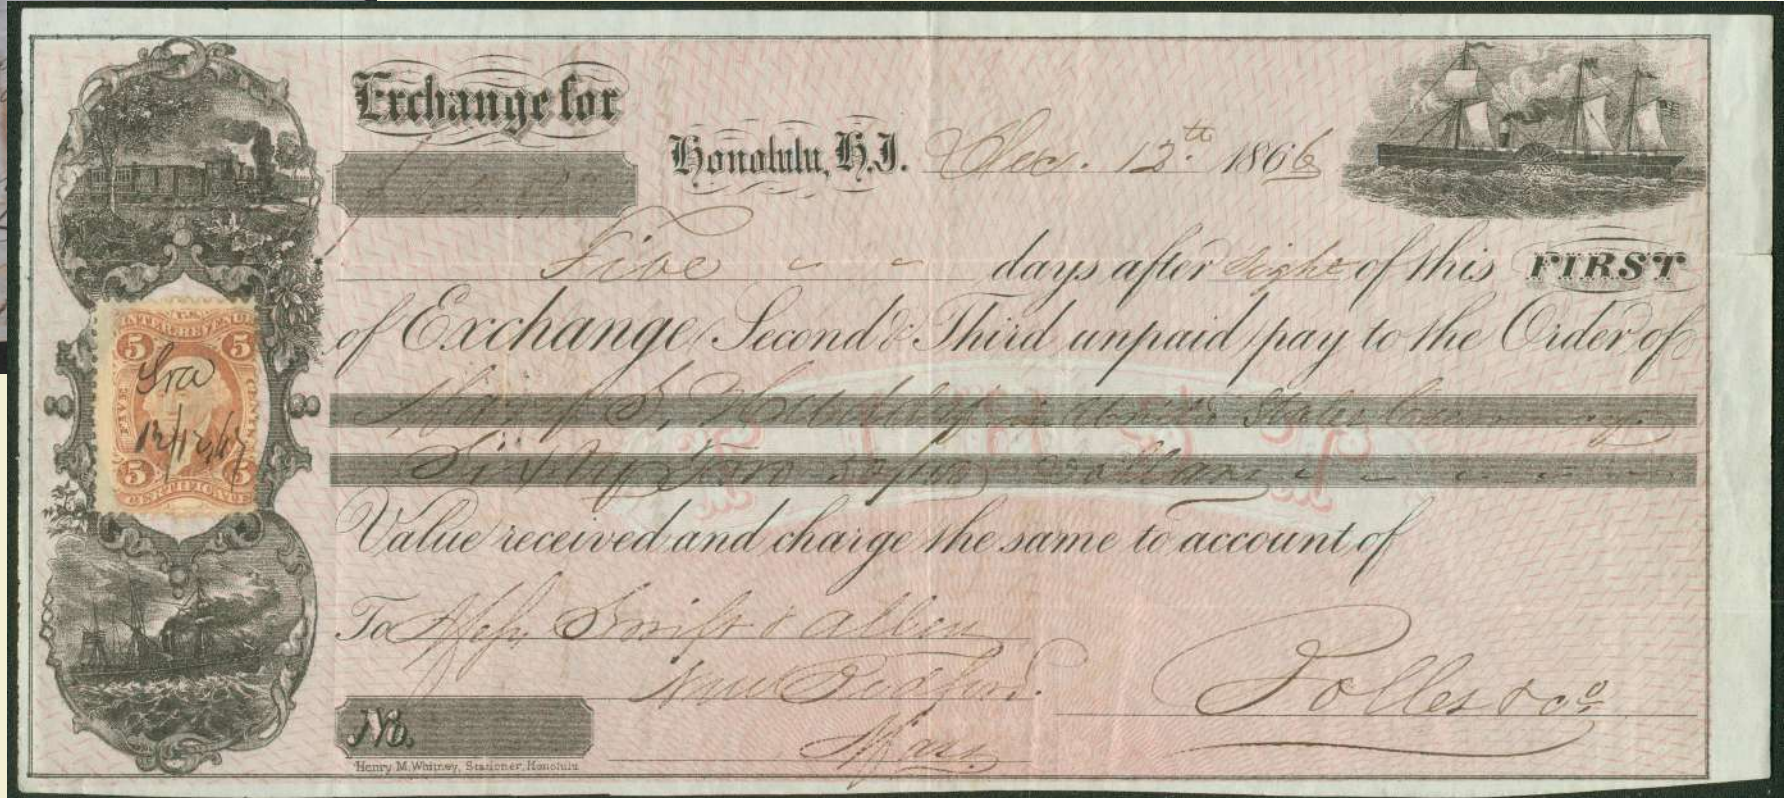 Exchange for
Honolulu, H.I. Dec. 12th. 1866
Five days after sight of this FIRST
of Exchange (Second & Third unpaid) pay to the Order of
United States Currency
Sixty Two Dollars
Value received and charge the same to account of
To Messrs Swift & Allen
New Bedford. Bolles & Co
No. Mass.
Henry M. Whitney, Stationer, Honolulu
U.S.
5 5
FIVE CENTS
5 5
CERTIFICATE